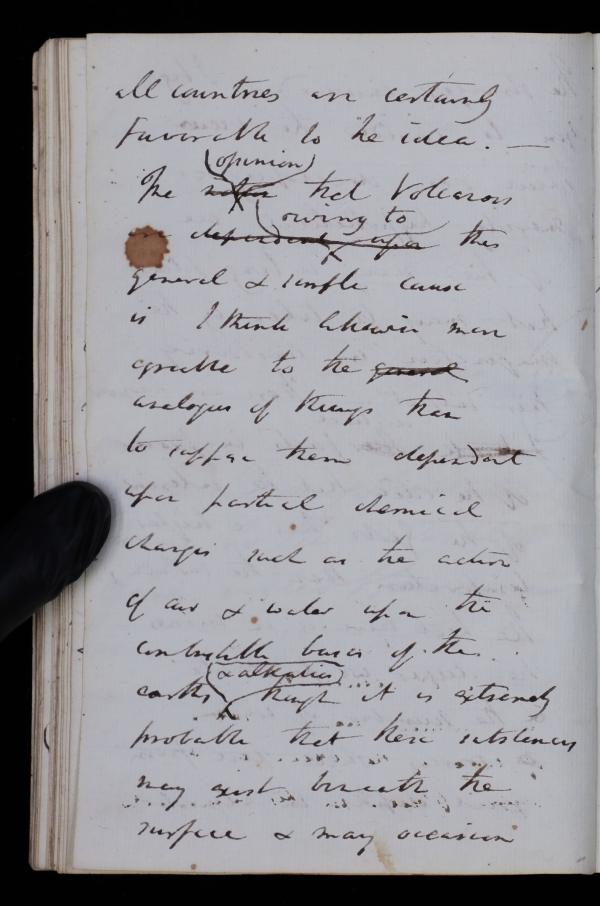 all countries are certainly
favorable to the idea. —
(opinion)
The notion that Volcanos
(owing to
dependent upon this
general & simple cause
is I think likewise more
agreeable to the general
analogies of things than
to suppose them dependent
upon partial chemical
changes such as the action
of air & water upon the
combustible bases of the
(& alkalies)
earths though it is extremely
probable that these substances
may exist beneath the
surface & may occasion